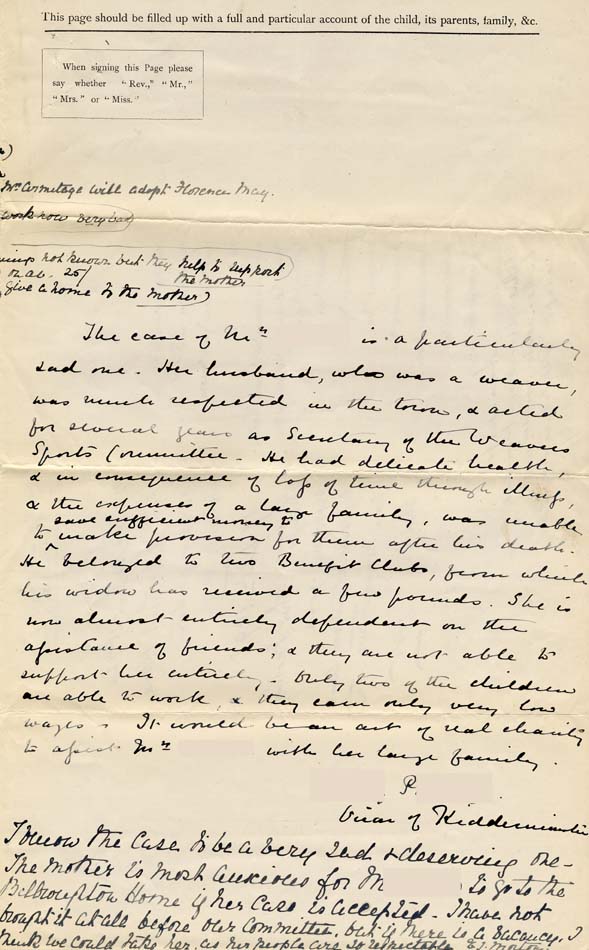 This page should be filled up with a full and particular account of the child, its parents, family, &c.
When signing this Page please
say whether "Rev.," "Mr.,"
"Mrs." or "Miss."
Mrs Armitage will adopt Florence May.
work now very bad
not known but they help to support
the mother
25/
give a home to the mother)
The case of Mrs is a particularly
sad one. Her husband, who was a weaver,
was much respected in the town, & acted
for several years as Secretary of the Weavers
Sports Committee. He had delicate health,
& in consequence of loss of time through illness,
& the expenses of a large family, was unable
save sufficient money to
to make provision for them after his death.
He belonged to two Benefit Clubs, from which
his widow has received a few pounds. She is
now almost entirely dependent on the
assistance of friends; & they are not able to
support her entirely. Only two of the children
are able to work, & they earn only very low
wages. It would be an act of real charity
to assist Mrs with her large family.
P.
Vicar of Kidderminster
I know the case to be a very sad & deserving one -
The mother is most anxious for M to go to the
Home if her case is accepted - I have not
brought it at all before our Committee, but if there is a vacancy, I
think we could take her, as her people are so respectable &